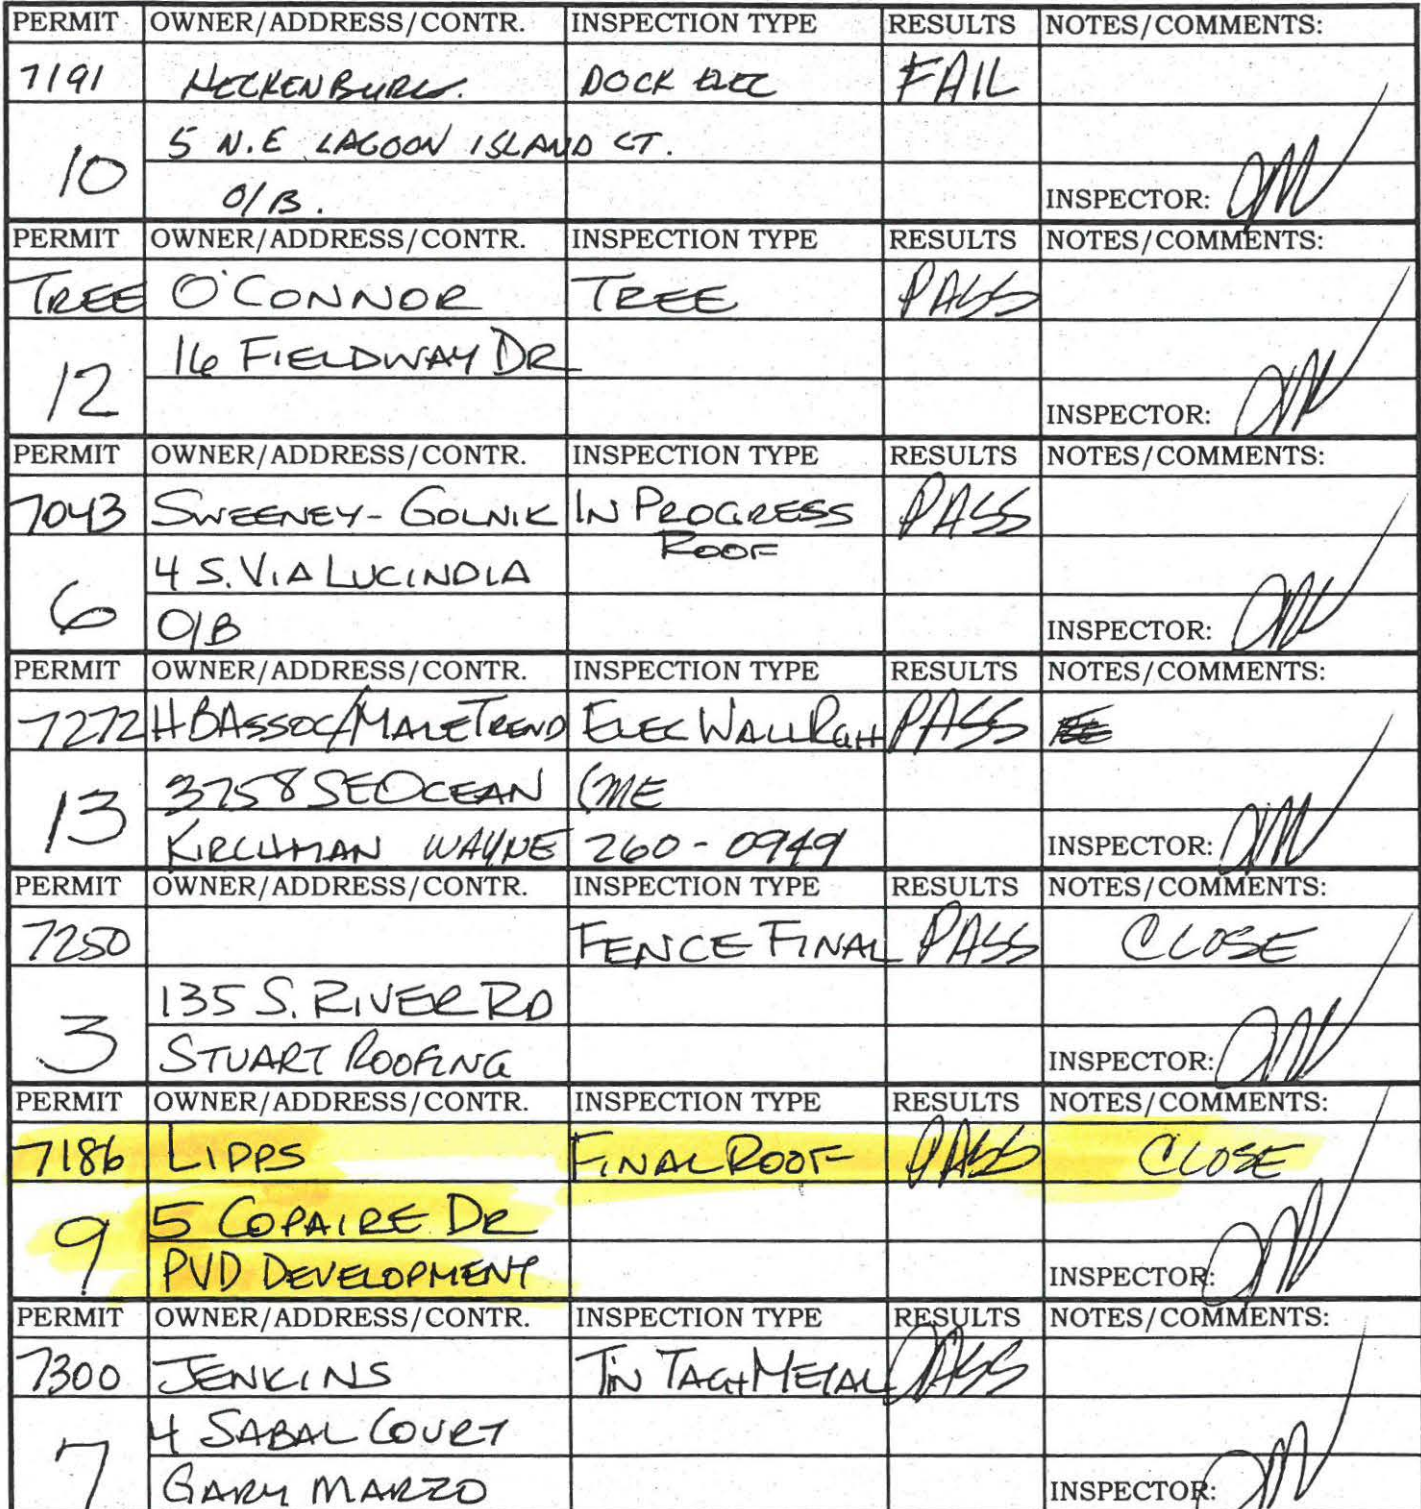 PERMIT OWNER/ADDRESS/CONTR. INSPECTION TYPE RESULTS NOTES/COMMENTS:
7191 HECKENBURG. DOCK ELEC FAIL
5 N.E LAGOON ISLAND CT.
10 O/B. INSPECTOR:
PERMIT OWNER/ADDRESS/CONTR. INSPECTION TYPE RESULTS NOTES/COMMENTS:
TREE O'CONNOR TREE PASS
16 FIELDWAY DR
12 INSPECTOR:
PERMIT OWNER/ADDRESS/CONTR. INSPECTION TYPE RESULTS NOTES/COMMENTS:
7043 SWEENEY-GOLNIK IN PROGRESS PASS
ROOF
4 S. VIA LUCINDIA
6 O/B INSPECTOR:
PERMIT OWNER/ADDRESS/CONTR. INSPECTION TYPE RESULTS NOTES/COMMENTS:
7272 HBASSOC/MALETREND ELEC WALL RGH PASS
13 3758 SE OCEAN
KIRCHMAN WAYNE 260-0949 INSPECTOR:
PERMIT OWNER/ADDRESS/CONTR. INSPECTION TYPE RESULTS NOTES/COMMENTS:
7250 FENCE FINAL PASS CLOSE
135 S. RIVER RD
3 STUART ROOFING INSPECTOR:
PERMIT OWNER/ADDRESS/CONTR. INSPECTION TYPE RESULTS NOTES/COMMENTS:
7186 LIPPS FINAL ROOF PASS CLOSE
9 5 COPAIRE DR
PVD DEVELOPMENT INSPECTOR:
PERMIT OWNER/ADDRESS/CONTR. INSPECTION TYPE RESULTS NOTES/COMMENTS:
7300 JENKINS TIN TAG+METAL PASS
4 SABAL COURT
7 GARY MARZO INSPECTOR: